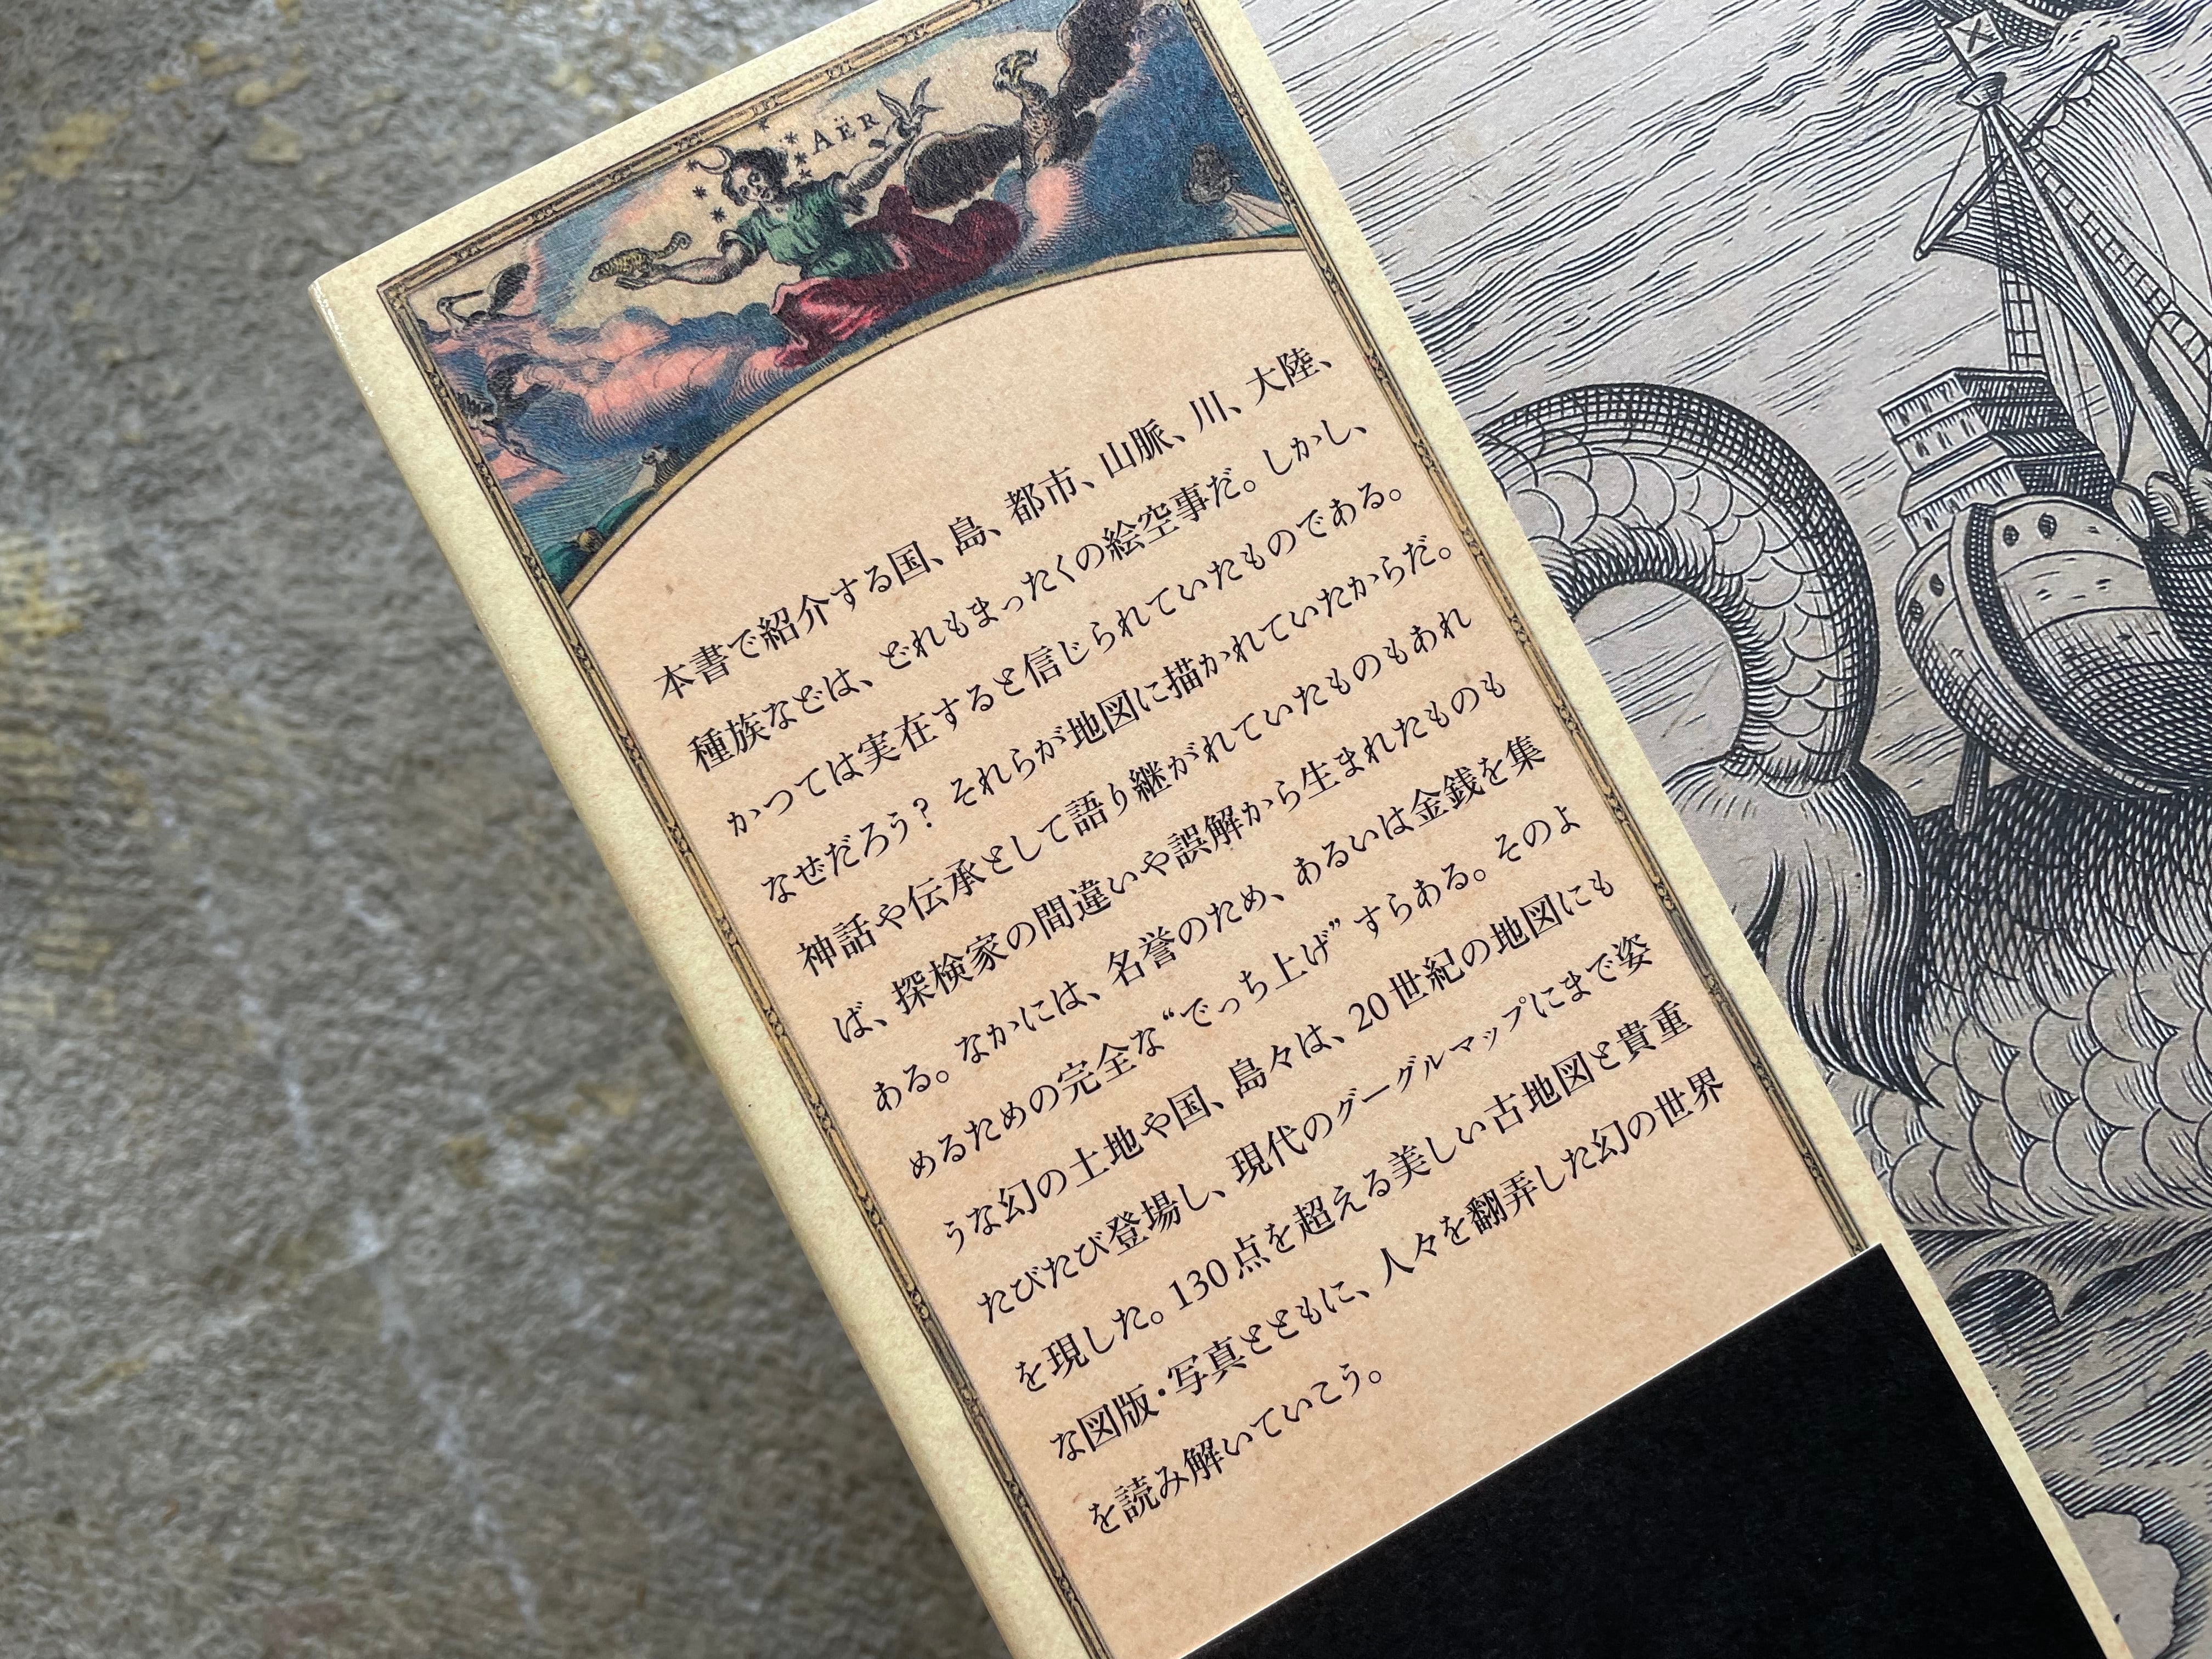 AËR
本書で紹介する国、島、都市、山脈、川、大陸、
種族などは、どれもまったくの絵空事だ。しかし、
かつては実在すると信じられていたものである。
なぜだろう？ それらが地図に描かれていたからだ。
神話や伝承として語り継がれていたものもあれ
ば、探検家の間違いや誤解から生まれたものも
ある。なかには、名誉のため、あるいは金銭を集
めるための完全な“でっち上げ”すらある。そのよ
うな幻の土地や国、島々は、20世紀の地図にも
たびたび登場し、現代のグーグルマップにまで姿
を現した。130点を超える美しい古地図と貴重
な図版・写真とともに、人々を翻弄した幻の世界
を読み解いていこう。